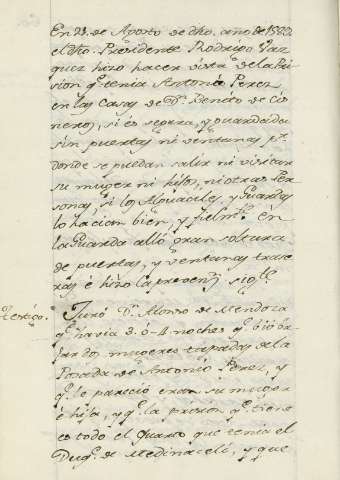 En 23. de Agosto de dho. año de 1589
el dho. Presidente Rodrigo Vaz
quez hizo hacer vista de la Pri
sion qe. tenia Antonio Perez
en las Casas de Dn. Benito de Cis
neros, si és segura, y guardada
sin puertas ni ventanas pr.
donde se puedan salir ni visitar
su muger ni hijos, ni otras Per
sonas, si los Alguaciles, y Guardas
lo hacian bien, y fielmte. én
la Guarda alló gran soltura
de puertas, y ventanas trase
ras é hizo la prevenn. sigte.
Testigo. Juró Dn. Alonso de Mendoza
qe. havia 3. ó 4 noches qe. bió ba
jar dos mugeres tapadas de la
Posada de Antonio Perez, y
qe. le pareció eran su muger
é hija, y qe. la prision qe. tiene
es todo el quarto que tenia el
Duqe. de Medinaceli, y que